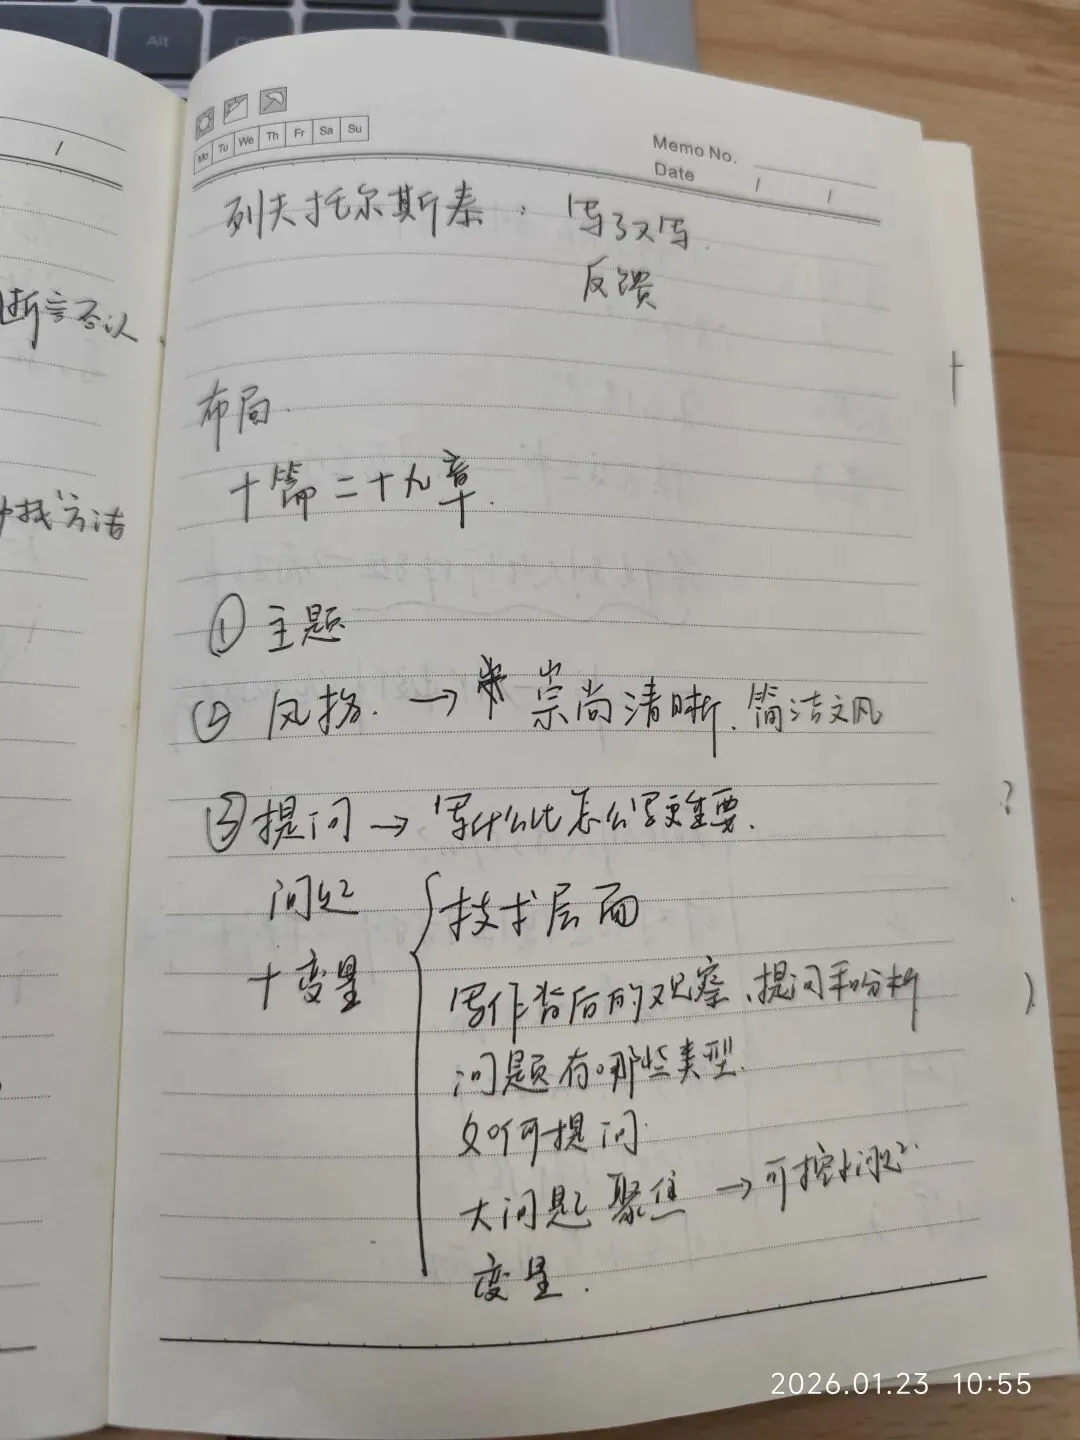 Alt
Mo Tu We Th Fr Sa Su
Memo No.
Date / /
列夫托尔斯泰: 写了又写.
反馈
断言否认
布局.
十篇二十九章.
找方法
① 主题
② 风格. → 崇尚清晰、简洁文风
③ 提问 → 写什么比怎么写更重要.
问题
十变量
技术层面
写作背后的观察、提问和分析
问题有哪些类型.
如何提问.
大问题 聚焦 → 可控小问题.
变量.
2026.01.23 10:55